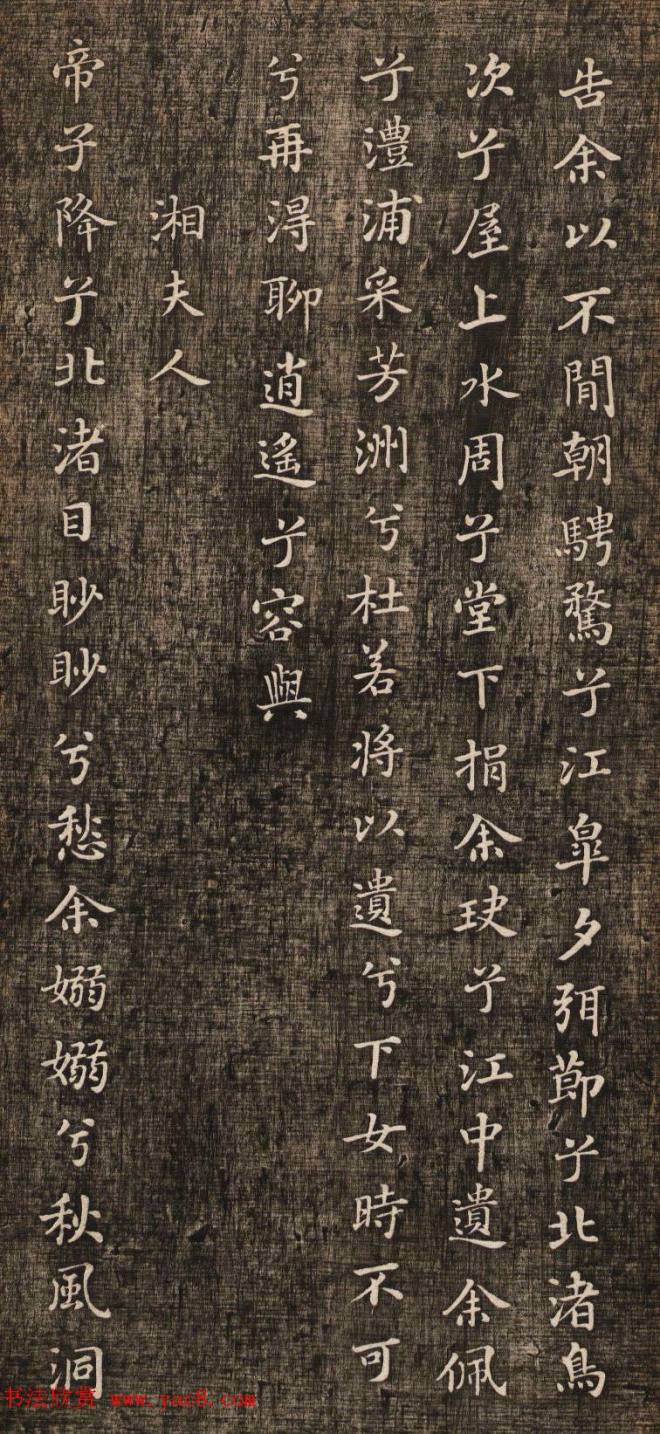 告余以不閒朝騁騖兮江皐夕弭節兮北渚鳥
次兮屋上水周兮堂下捐余玦兮江中遺余佩
兮澧浦采芳洲兮杜若將以遺兮下女時不可
兮再淂聊逍遙兮容與
湘夫人
帝子降兮北渚目眇眇兮愁余嫋嫋兮秋風洞
书法欣赏 www.yac8.com